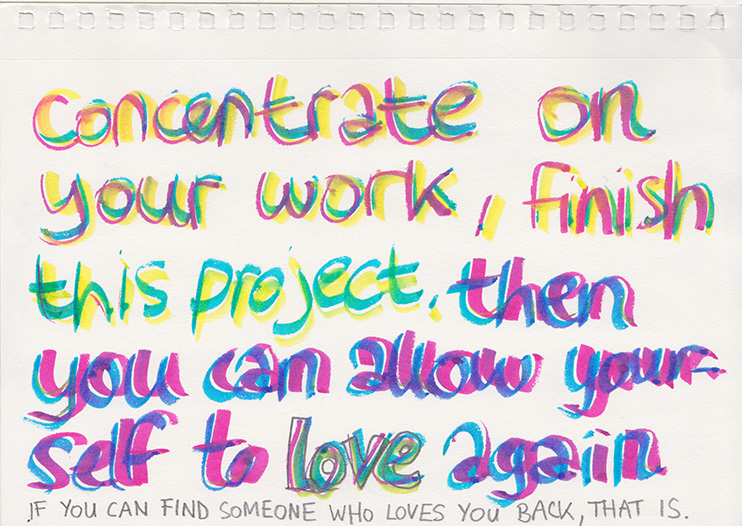 Concentrate on
your work, finish
this project. then
you can allow your-
self to love again
IF YOU CAN FIND SOMEONE WHO LOVES YOU BACK, THAT IS.